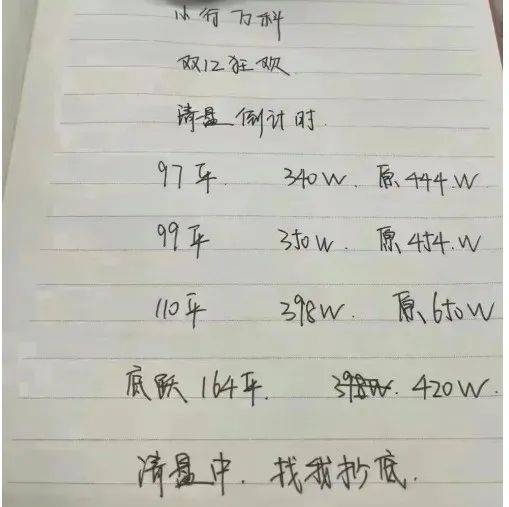 小行万科
双12狂欢
清盘倒计时.
97平. 340W. 原444.W
99平 350W. 原454.W
110平 398W. 原650W
底跃164平. 398W. 420W.
清盘中. 找我抄底.